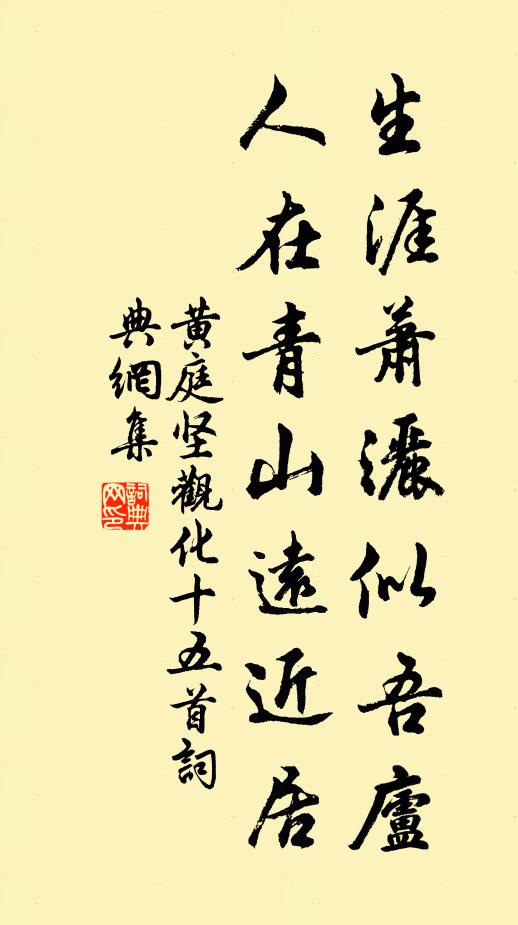 生涯蕭灑似吾廬
人在青山遠近居
黃庭坚觀化十五首詞
典網集
詞典
网印